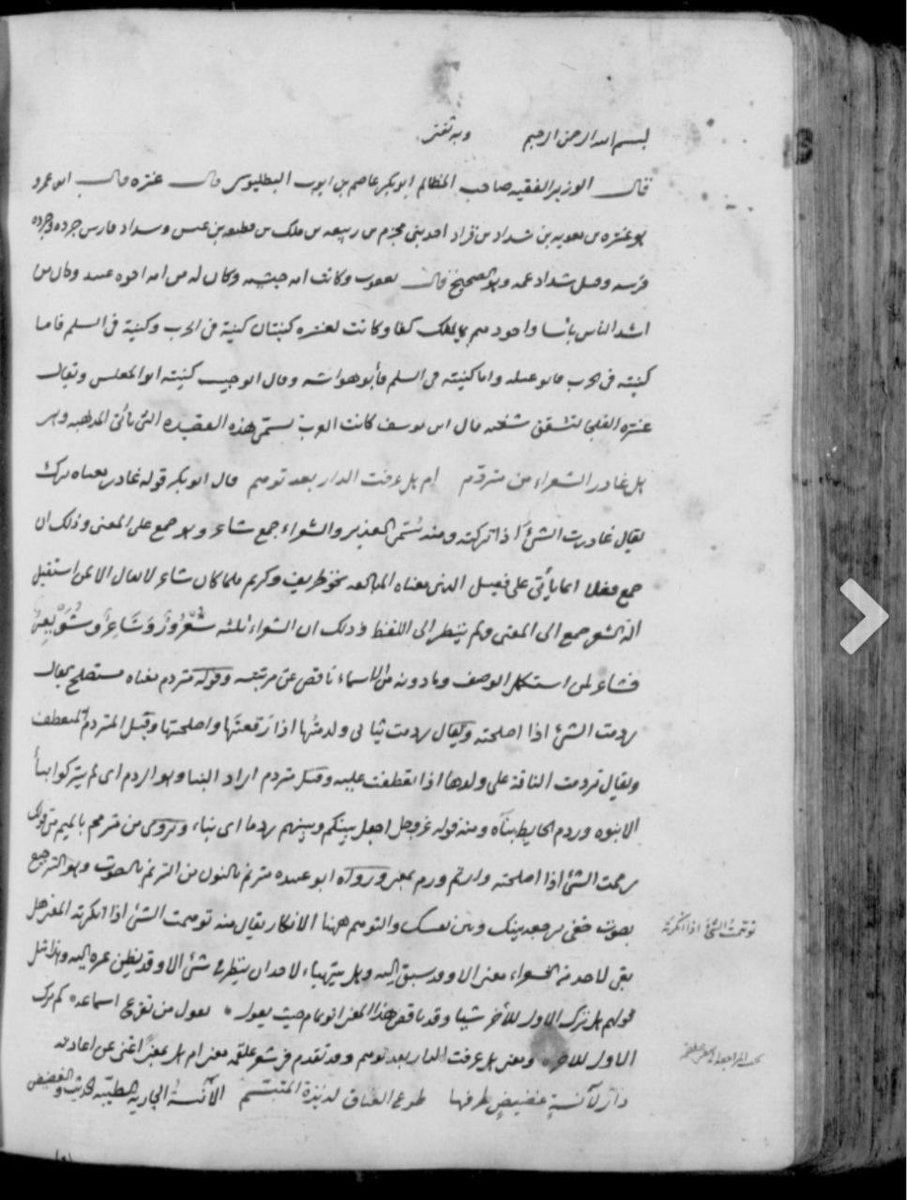 بسم الله الرحمن الرحيم وبه ثقتى
قال الوزير الفقيه صاحب المظالم ابو بكر عاصم بن ايوب البطليوسى قال عنتره قال ابو عمرو
هو عنتره بن معويه بن شداد بن قراد احد بنى مخزوم بن ربيعه بن ملك بن قطيعه بن عبس وشداد فارس جروه وجروه
فرسه وقيل شداد عمه وهو الصحيح قال يعقوب وكانت امه حبشيه وكان له من امه اخوه عبيد وكان من
اشد الناس باسا واجودهم بما يملك كفا وكانت لعنتره كنيتان كنية فى الحرب وكنية فى السلم فاما
كنيته فى الحرب فابو عبله واما كنيته فى السلم فأبو وقال ابو حبيب كنيته ابو المغلس ويقال
عنتره الفلحاء لتشقق شفته قال ابن يوسف كانت العرب تسمى هذه القصيده التى تأتى المذهبه وهى
هل غادر الشعراء من متردم ام هل عرفت الدار بعد توهم قال ابو بكر قوله غادر معناه ترك
يقال غادرت الشئ اذا تركته ومنه سُمى الغدير والشعراء جمع شاعر وهو جمع على المعنى وذلك ان
جمع فعلا انما يأتى على فعيل الذى معناه المبالغه نحو ظريف وكريم فلما كان شاعر لا يقال الا لمن استقبل
الة الشعر جمع الى المعنى ولم ينظر الى اللفظ وذلك ان الشعراء ثلثه شُعْرُورٌ وَشَاعِرٌ وشُوَيْعِرٌ
فشاعر لمن استكمل الوصف وما دونه من الاسماء ناقص عن مرتبته وقوله متردم معناه مستصلح يقال
ردمت الشئ اذا اصلحته ويقال ردمت ثيابى ولدمتها اذا رقعتها واصلحتها وقيل المتردم المتعطف
ويقال تردمت الناقة على ولدها اذا تعطفت عليه وقيل متردم اراد البنا وهو الردم اى لم يتركوا بناً
الا بنوه وردم الحايط بناه ومنه قوله عز وجل اجعل بينكم وبينهم ردما اى بناء وتروى من مترمم بالميم من قولك
رممت الشئ اذا اصلحته وردم ورم بمعنى ورواه ابو عبيده مترنم بالنون من الترنم بالصوت وهو الترجيع
بصوت خفى ترجعه بينك وبين نفسك والتوهم ههنا الانكار يقال منه توهمت الشئ اذا انكرته المعنى هل
بقى لاحد من الشعراء معنى الا وقد سبق اليه وهل يتهيا لاحد ان ينظر فى شئ الا وقد نظر غيره اليه وهذا مثل
قولهم هل ترك الاول للآخر شيئا وقد ناقض هذا المعنى ابو تمام حيث يقول يقول من تقرع اسماعه كم ترك
الاول للآخر ومعنى هل عرفت الدار بعد توهم وقد تقدم فى شعر علقمه معنى ام هل بمعنى اغنى عن اعادته
دارٌ لآنسةٍ غضيضٍ طرفها طوع العناق لذيذة المتبسم الآنسة الجارية الطيبه الحديث والغضيض
توهمت الشئ اذا انكرته